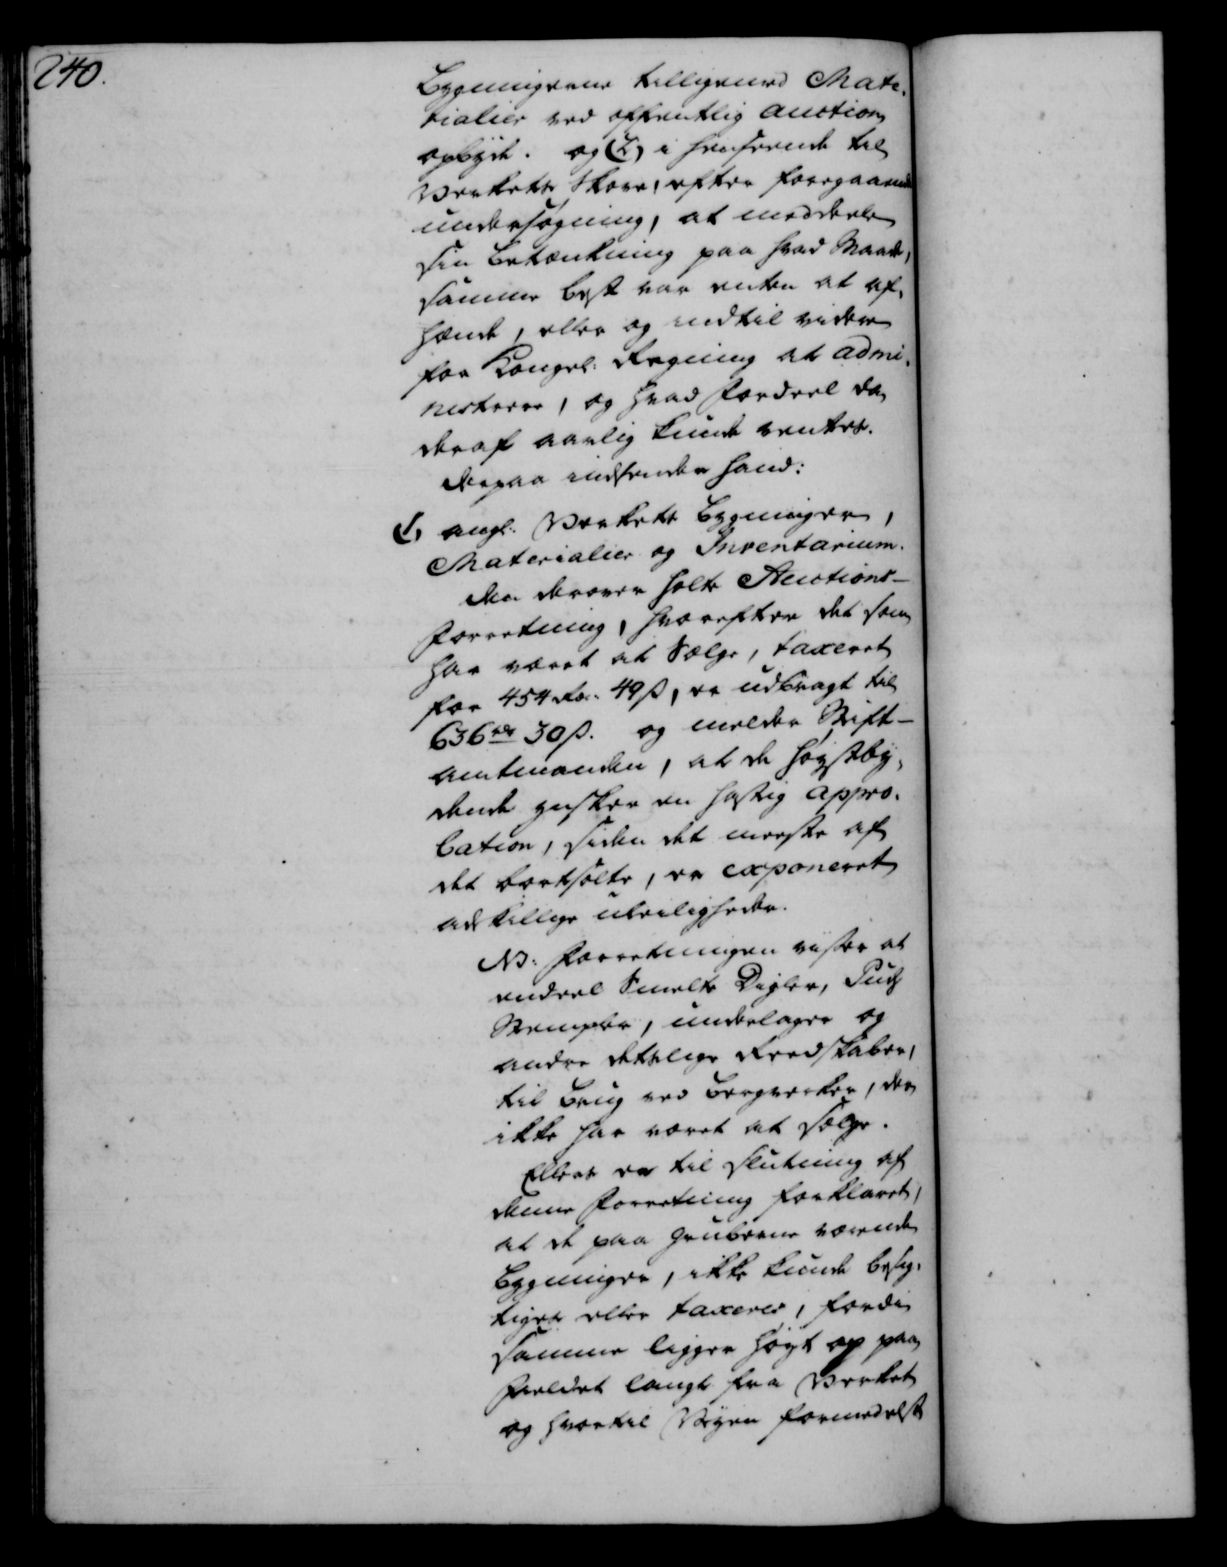 240.
Bygningerne tilligemed Mate-
rialier ved offentlig auction
opbyde. og (2, i henseende til
Verkets Skove, efter foregaaende
undersøgning, at meddeele
sin betænkning paa hvad Maade,
samme best var enten at af-
hænde, eller og indtil videre
for Kongel: Regning at admi-
nistrere, og hvad fordeel der
deraf aarlig kunde ventes.
derpaa indsender hand:
(1, angl: Verkets bygninger,
Materialier og Inventarium.
den derover holte Auctions-
Forretning, hvorefter det som
har været at Sælge, taxeret
for 454 Rdr. 49 ß, er udbragt til
636 rdr 30 ß. og melder Stift-
amtmanden, at de høystby-
dende ynsker en hastig appro-
bation, siden det meeste af
det bortsolte, er exponeret
adskillige ubeiligheder.
NB: Forretningen viser at
endeel Smelte Digler, Puch
Stempler, underlager og
andre deslige Reedskaber,
til brug ved bergverker, der
ikke har været at sælge.
Ellers er til slutning af
denne Forretning forklaret,
at de paa gruberne værende
bygninger, ikke kunde besig-
tiges eller taxeres, fordi
samme ligger høyt op paa
fieldet langt fra Verket
og hvortil Veyen formedelst